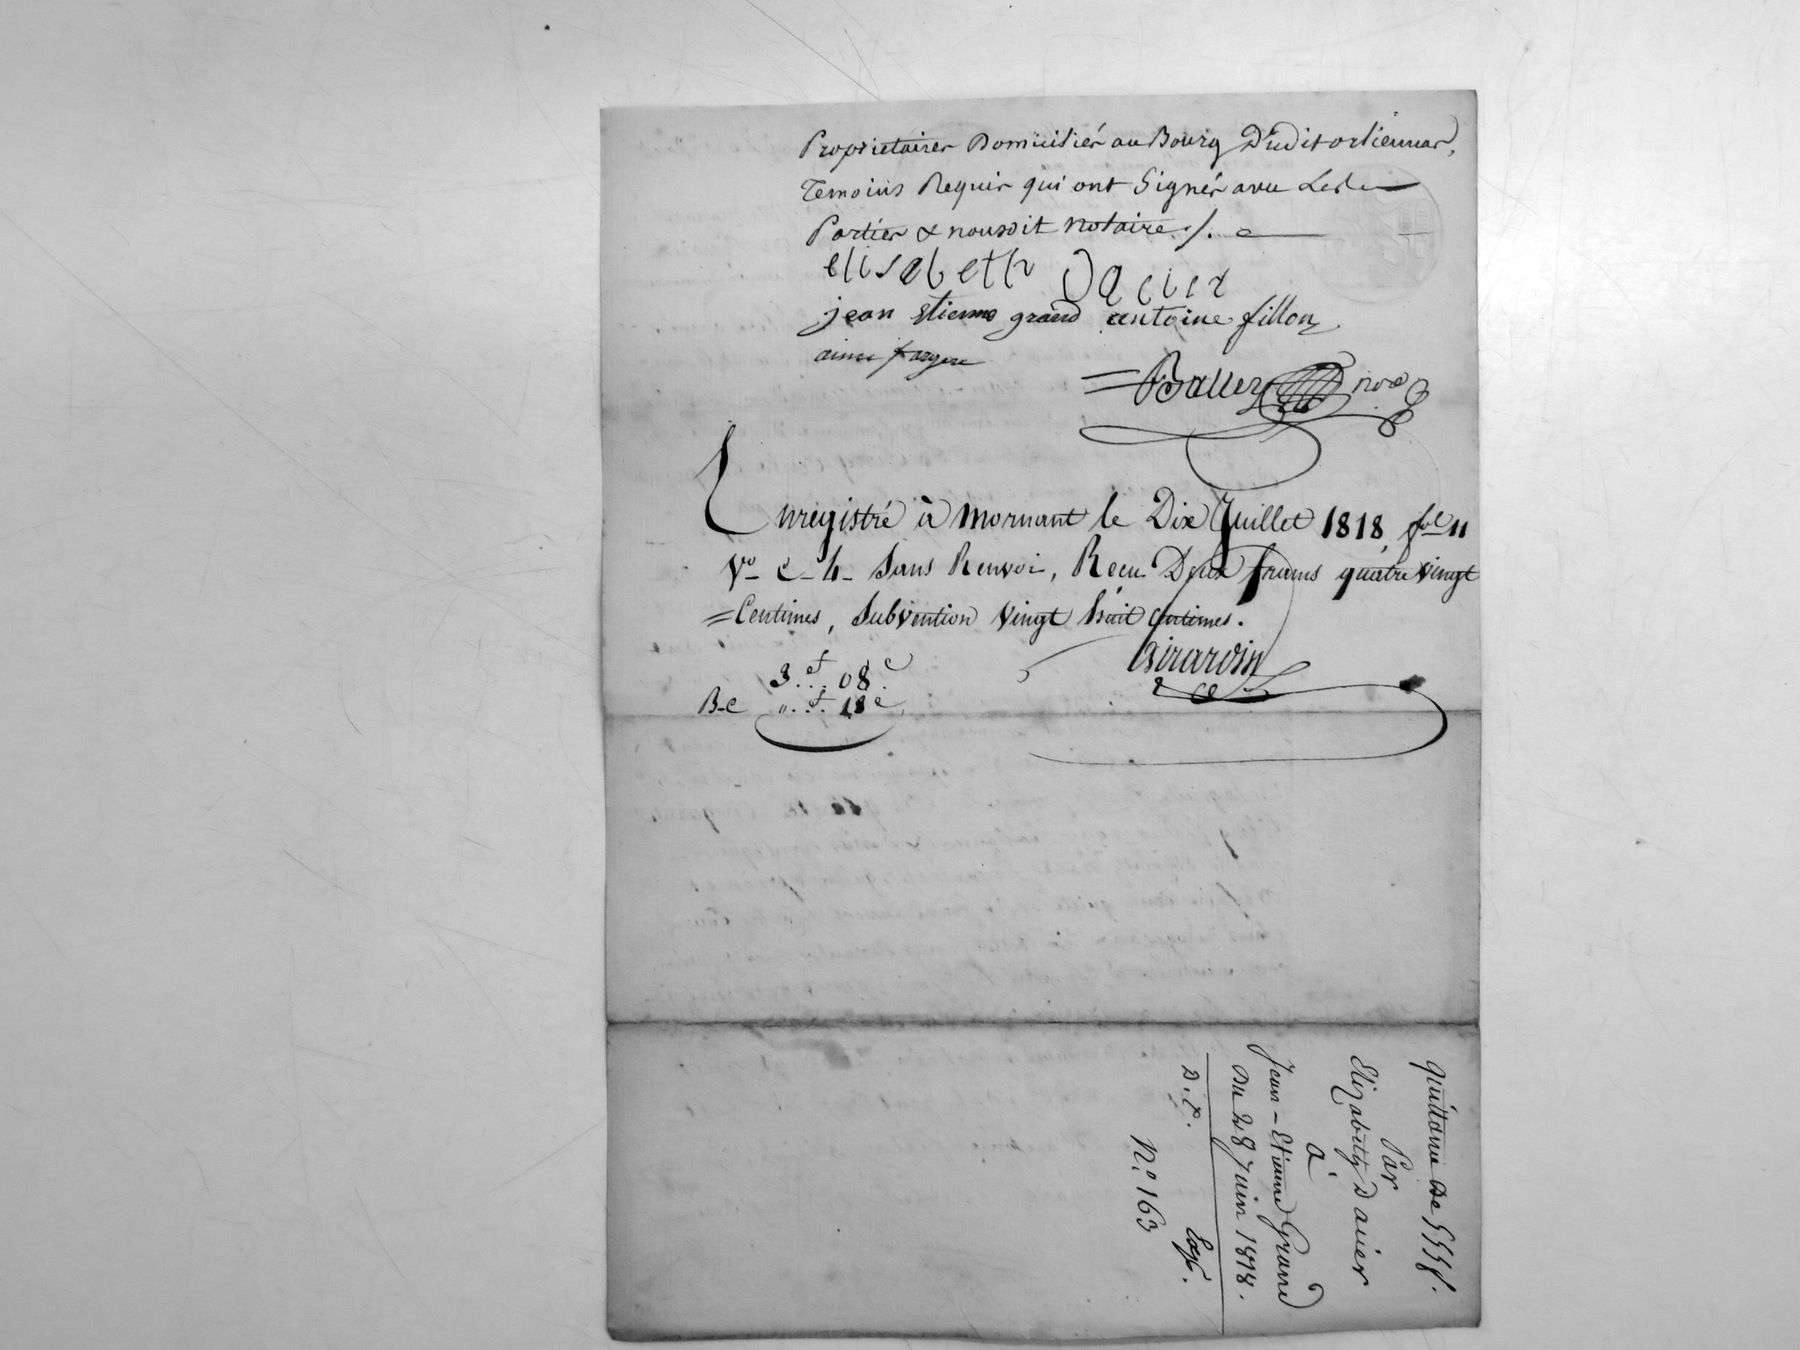 Proprietaires Domiciliés au Bourg Dudit orliennas,
Temoins Requis qui ont Signés avec Les
Parties & nousdit Notaire ./.
elisabeth Dacier
jean etienne grand antoine fillon
aimé fargere
Balley nore
Enregistré à Mornant le Dix Juillet 1818, fol 11
Vo C. 4. Sans Renvoi, Reçu Deux francs quatre vingt
= Centimes, Subvention vingt huit centimes.
Girardin
3.f.. 08c.
B-C 0..f. 18c
quittance De 555f.
Par
Elizabeth Dacier
à
Jean-Etienne Grand
Du 28 Juin 1818.
D. P. Exp.
N.o 163